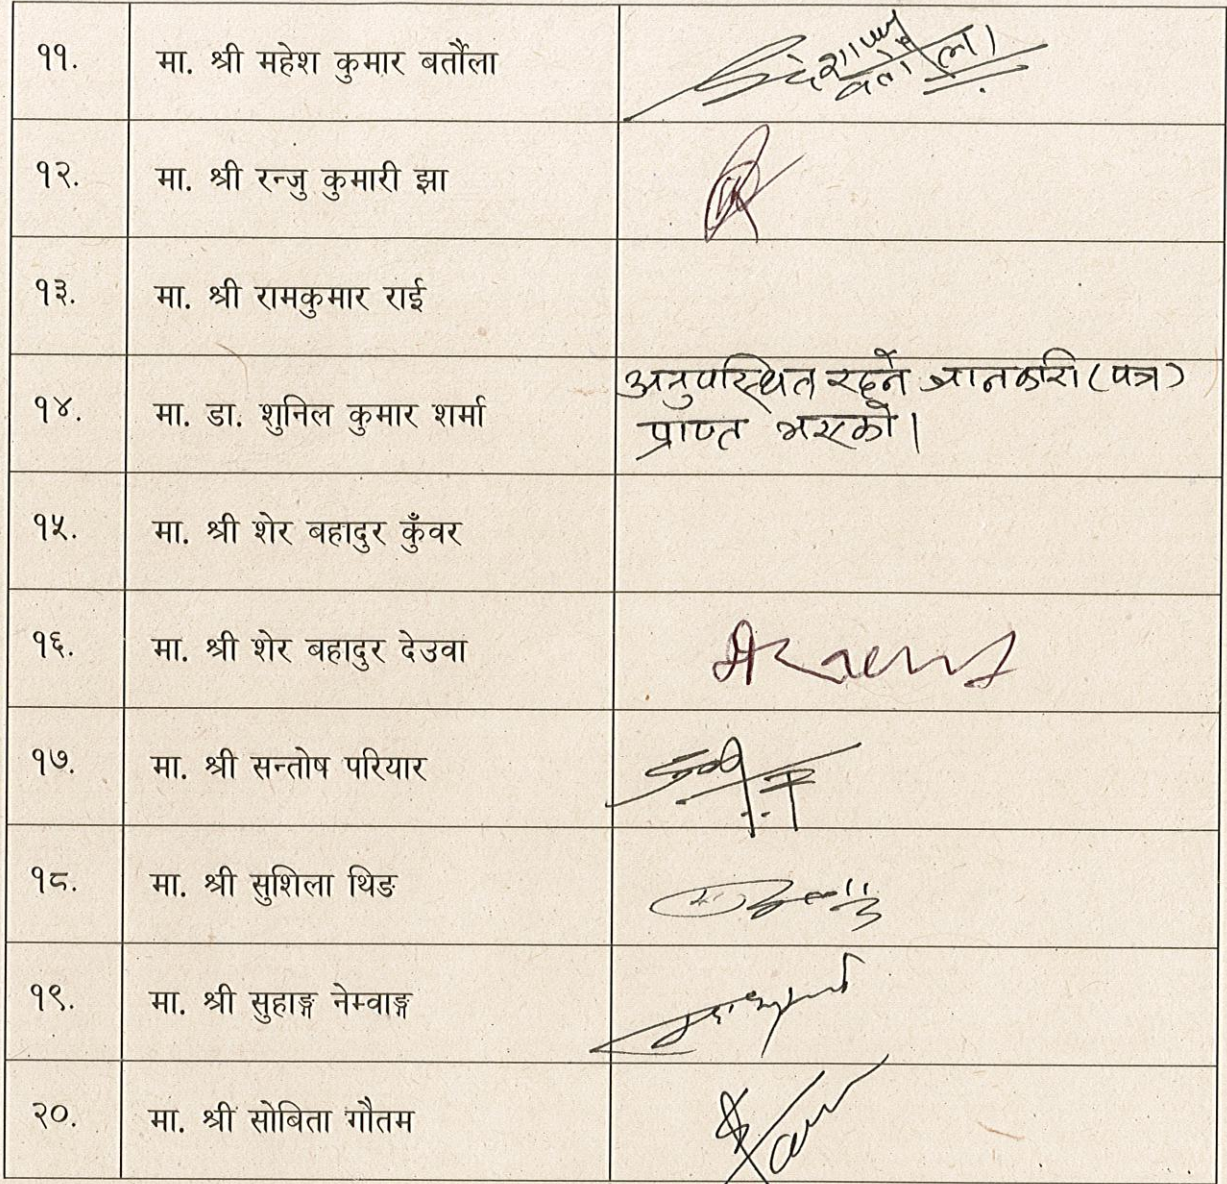 ११. मा. श्री महेश कुमार बर्तौला
१२. मा. श्री रन्जु कुमारी झा
१३. मा. श्री रामकुमार राई
१४. मा. डा. शुनिल कुमार शर्मा
अनुपस्थित रहने जानकारी (पत्र)
प्राप्त भएको।
१५. मा. श्री शेर बहादुर कुँवर
१६. मा. श्री शेर बहादुर देउवा
१७. मा. श्री सन्तोष परियार
१८. मा. श्री सुशिला थिङ
१९. मा. श्री सुहाङ्ग नेम्वाङ्ग
२०. मा. श्री सोबिता गौतम